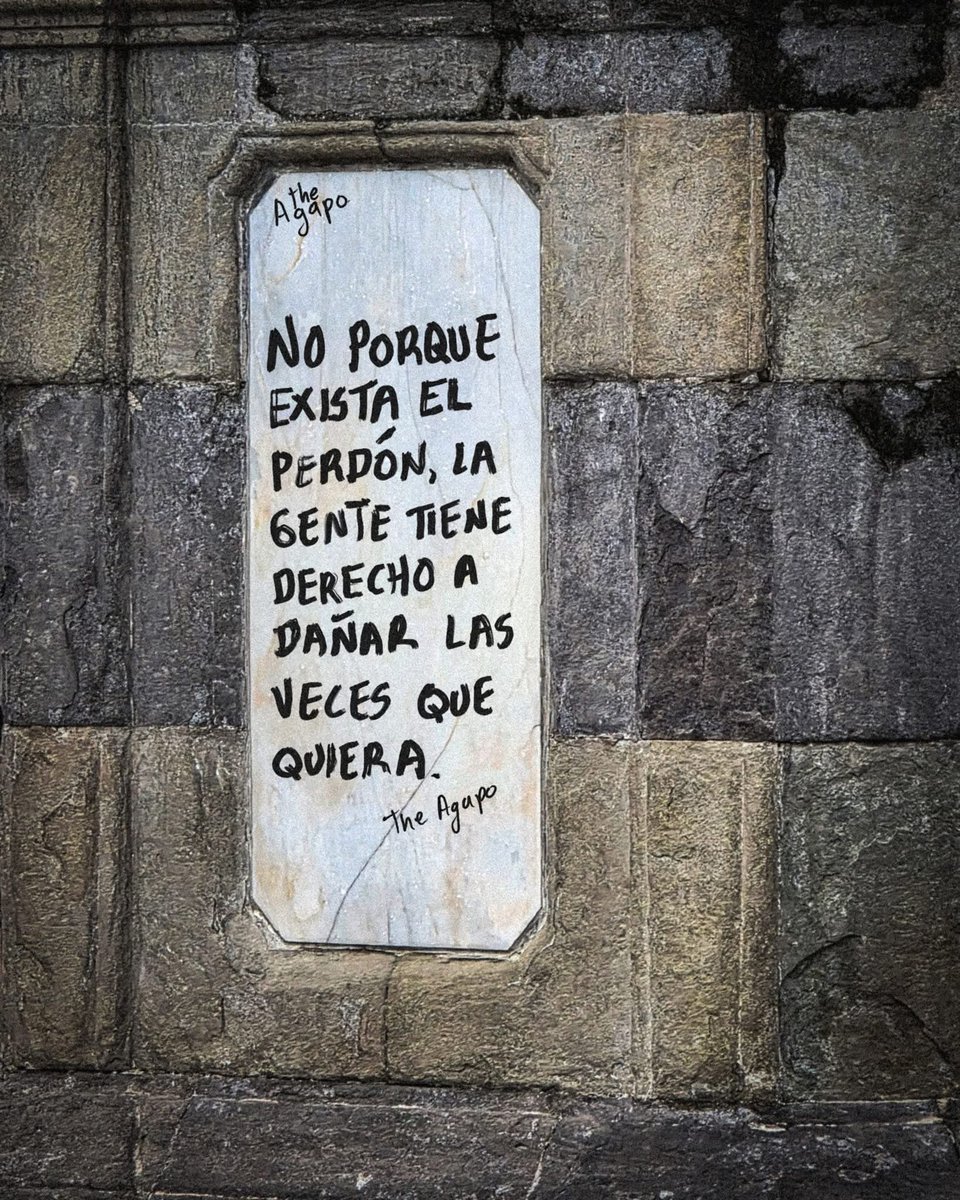 the
Agapo
NO PORQUE
EXISTA EL
PERDÓN, LA
GENTE TIENE
DERECHO A
DAÑAR LAS
VECES QUE
QUIERA.
the Agapo